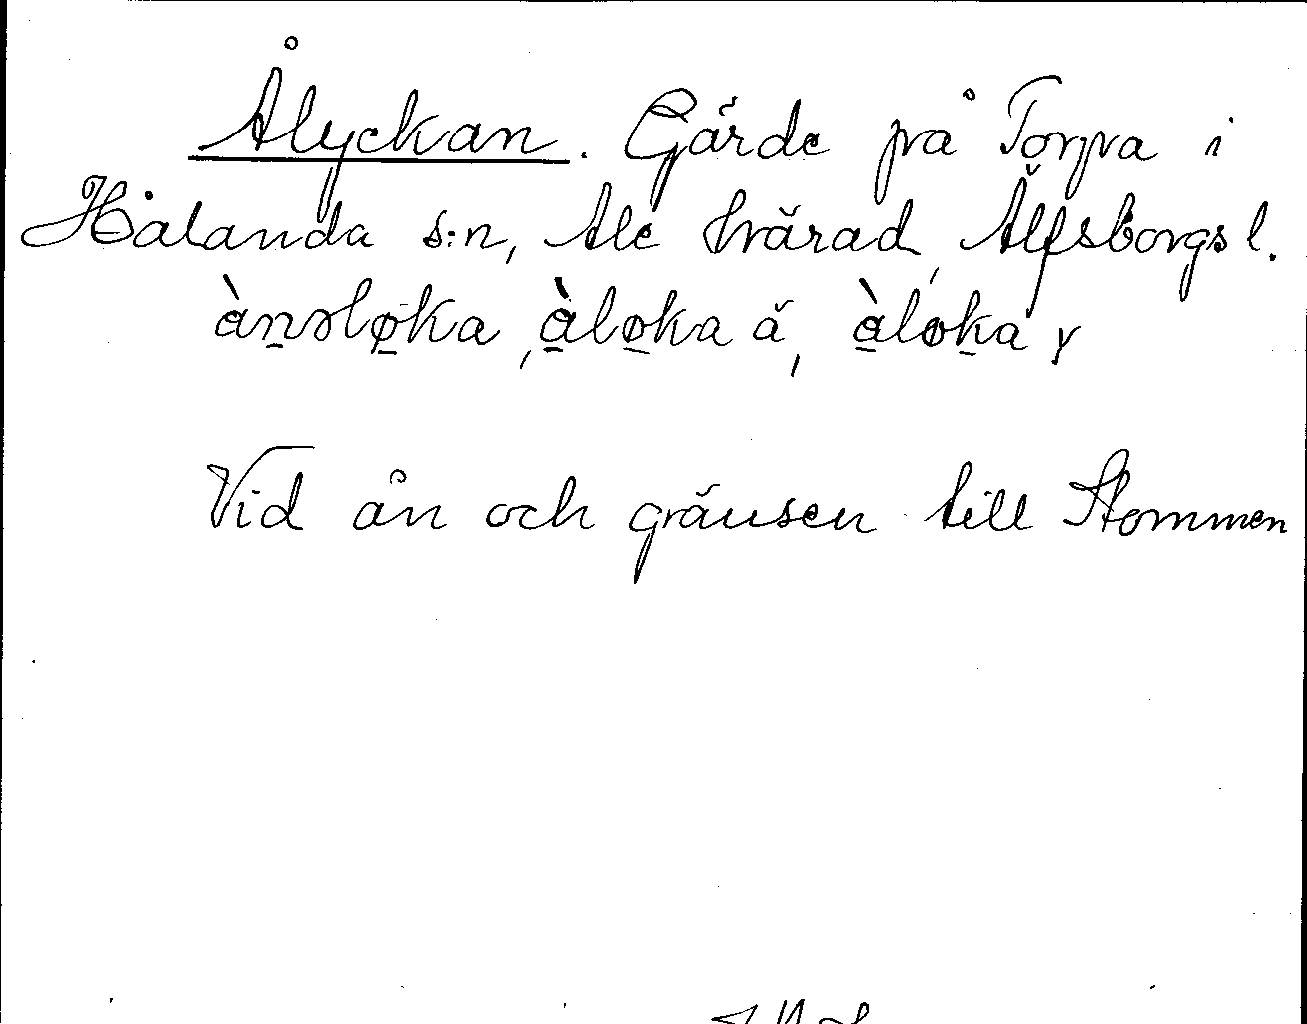 Ålyckan. Gärde på Torpa i
Hålanda s:n, Ale härad, Älfsborgs l.
ànsløka, àløka ä, àløka y
Vid ån och gränsen till Stommen